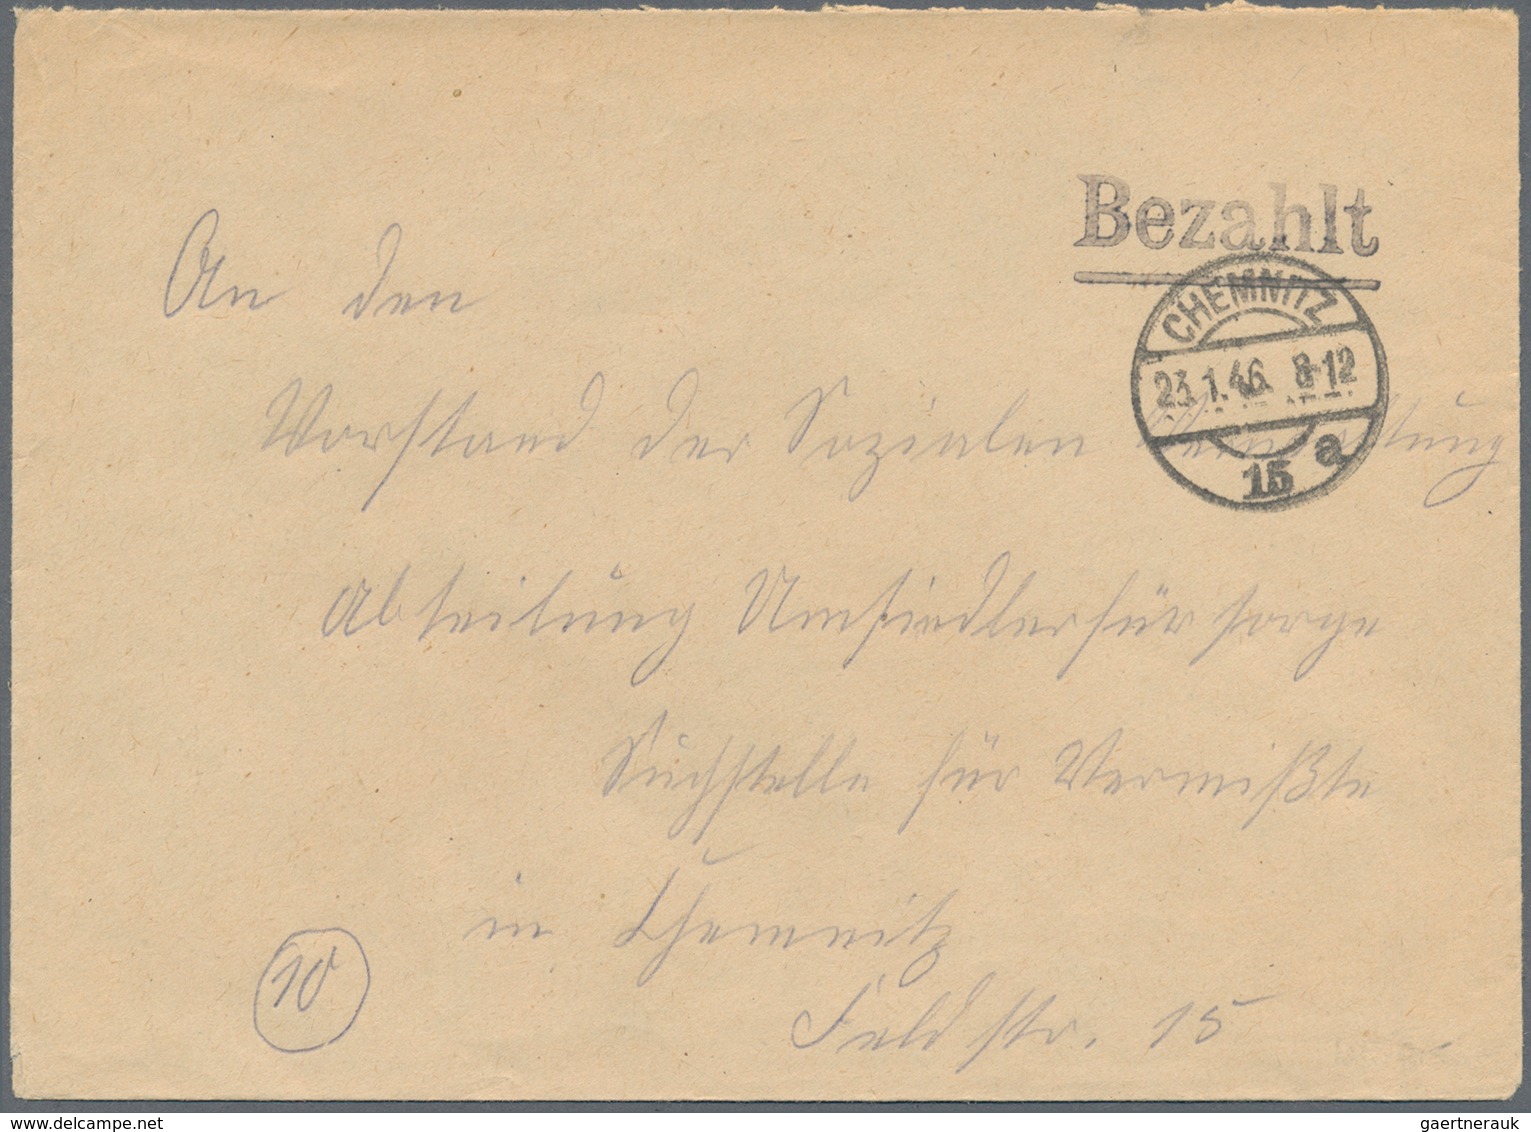 Bezahlt
CHEMNITZ
23.1.46. 8-12
15 a
An den
Vorstand der Sozialen
Abteilung Umsiedlerfürsorge
Suchstelle für Vermißte
in Chemnitz
10
Feldstr. 15
gaertnerauk